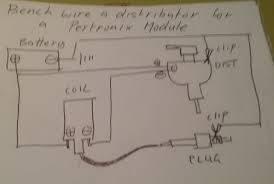 Bench wire a distributor for
a Pertronix Module
Battery
clip
DIST
COIL
clip
PLUG